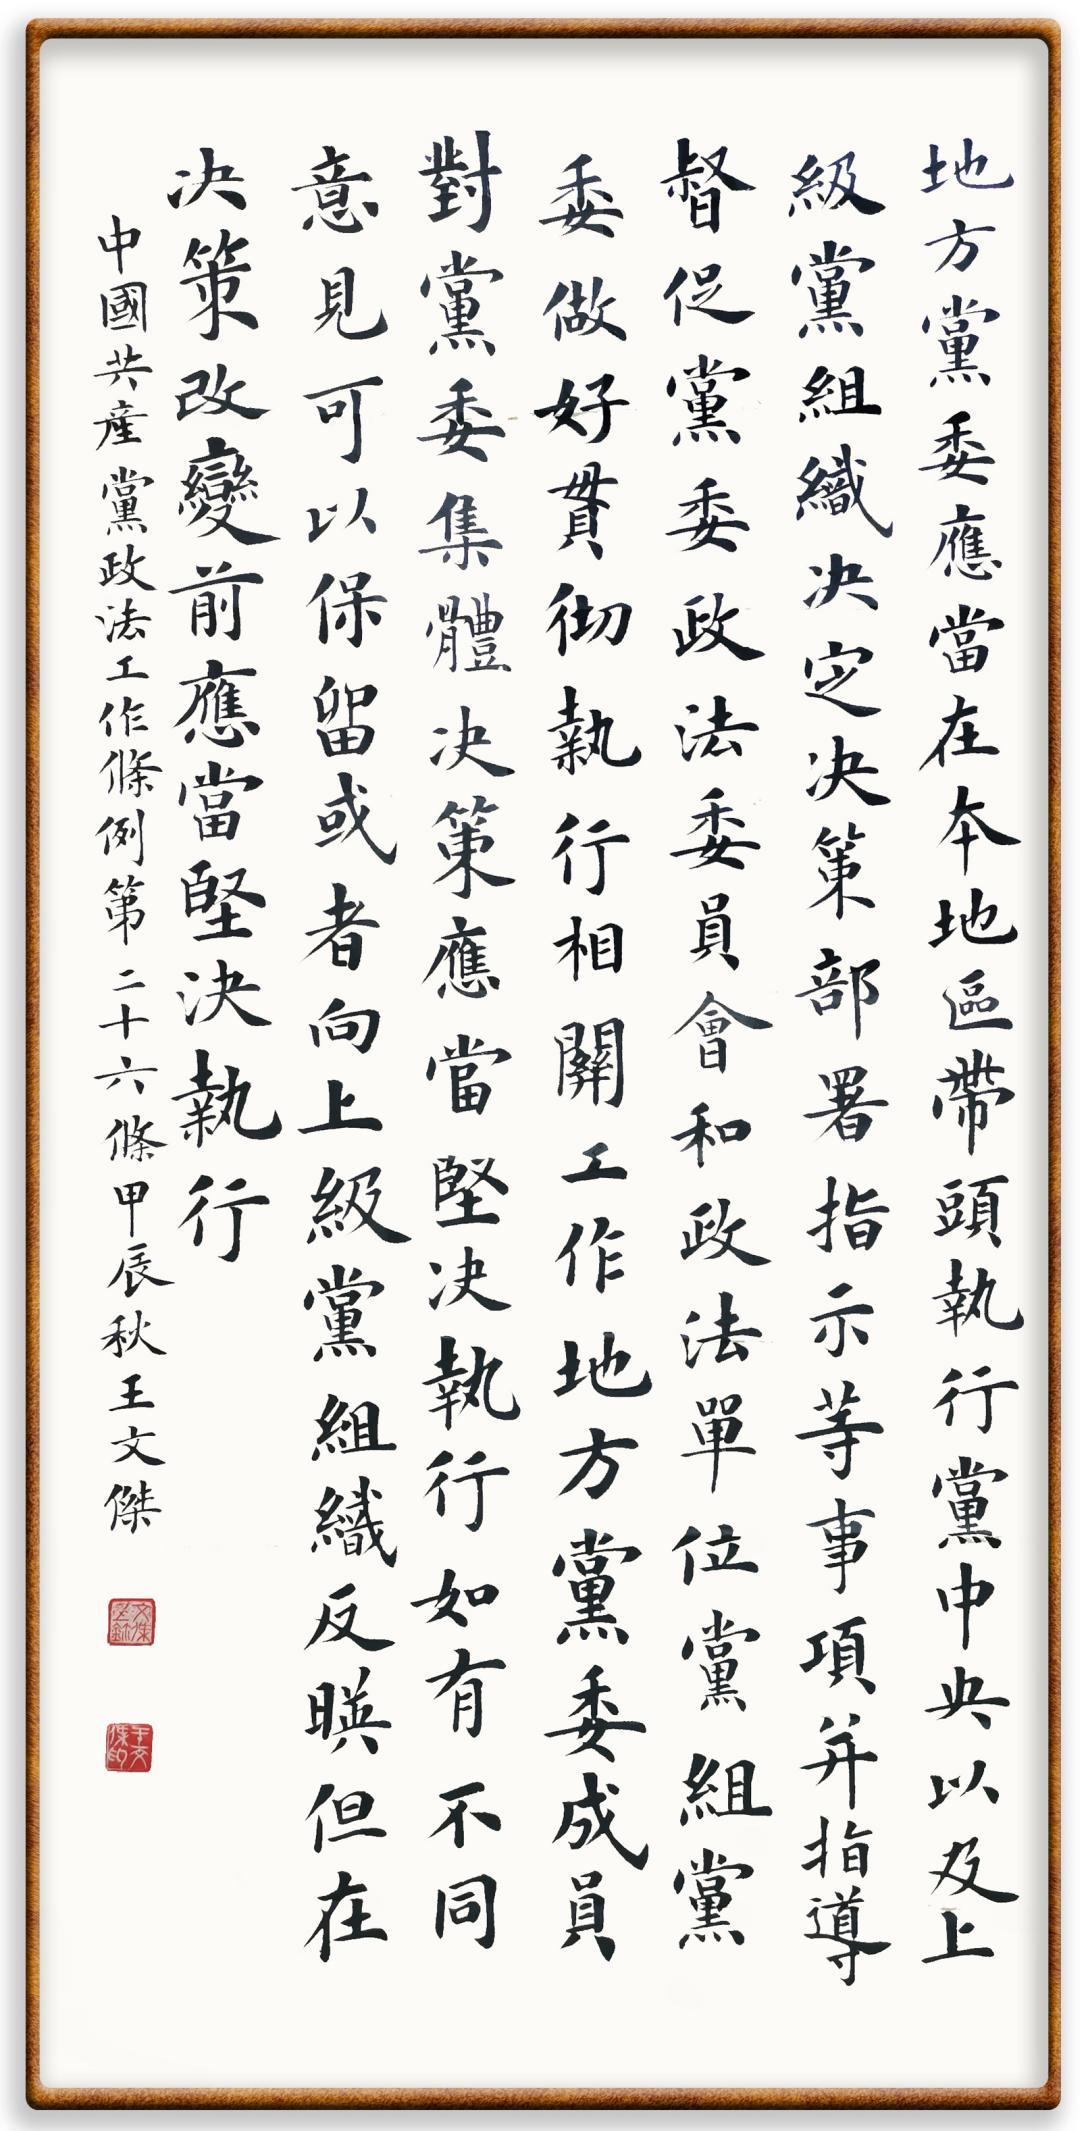 地方黨委應當在本地區帶頭執行黨中央以及上
級黨組織决定决策部署指示等事項并指導
督促黨委政法委員會和政法單位黨組黨
委做好貫彻執行相關工作地方黨委成員
對黨委集體决策應當堅决執行如有不同
意見可以保留或者向上級黨組織反暎但在
决策改變前應當堅決執行
中國共產黨政法工作條例第二十六條甲辰秋王文傑